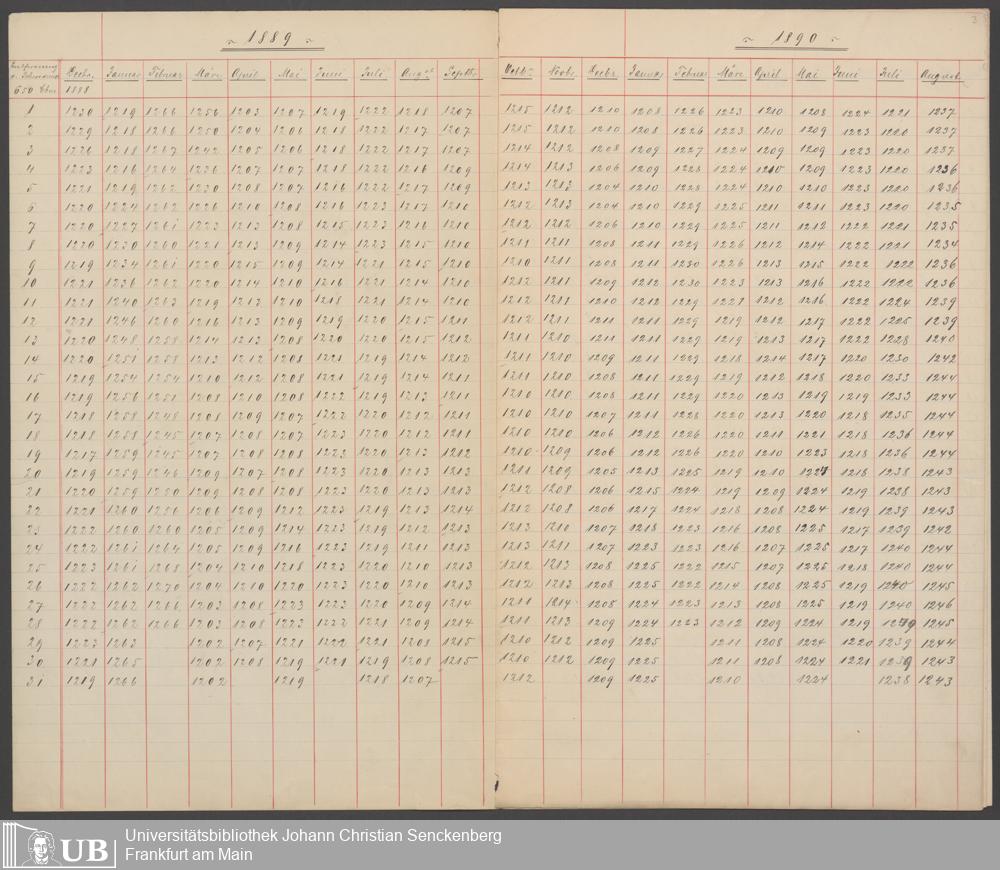 1889 1890
Decbr. Januar Februar März April Mai Juni Juli Aug. Septbr. Octbr. Novbr. Decbr. Januar Februar März April Mai Juni Juli August
650 1888
1 1230 1219 1266 1256 1203 1207 1219 1222 1218 1207 1215 1212 1210 1208 1226 1223 1210 1208 1224 1221 1237
2 1229 1218 1266 1250 1204 1206 1218 1222 1217 1207 1215 1212 1210 1208 1226 1223 1210 1209 1223 1220 1237
3 1226 1218 1267 1242 1205 1206 1218 1222 1217 1207 1214 1212 1208 1209 1227 1224 1209 1209 1223 1220 1237
4 1223 1216 1264 1236 1207 1207 1218 1222 1216 1209 1214 1213 1206 1209 1228 1224 1210 1209 1223 1220 1236
5 1221 1219 1262 1230 1208 1207 1216 1222 1217 1209 1213 1213 1204 1210 1228 1224 1210 1210 1223 1220 1236
6 1220 1224 1262 1226 1210 1208 1216 1223 1217 1210 1212 1213 1204 1210 1229 1225 1211 1211 1223 1220 1235
7 1220 1227 1261 1223 1213 1208 1215 1223 1216 1210 1212 1212 1206 1210 1229 1225 1211 1212 1222 1221 1235
8 1220 1230 1260 1221 1213 1209 1214 1223 1215 1210 1211 1211 1208 1211 1229 1226 1212 1214 1222 1221 1234
9 1219 1234 1261 1220 1215 1209 1214 1221 1215 1210 1210 1211 1208 1211 1230 1226 1213 1215 1222 1222 1236
10 1221 1236 1262 1220 1214 1210 1216 1221 1214 1210 1212 1211 1209 1212 1230 1223 1213 1216 1222 1222 1236
11 1221 1240 1263 1219 1212 1210 1218 1221 1214 1210 1212 1211 1210 1212 1229 1221 1212 1216 1222 1224 1239
12 1221 1246 1260 1216 1213 1209 1219 1220 1215 1211 1212 1211 1211 1211 1229 1219 1212 1217 1222 1225 1239
13 1220 1248 1258 1214 1213 1208 1220 1220 1215 1212 1211 1210 1211 1211 1229 1219 1213 1217 1222 1228 1240
14 1220 1251 1258 1213 1212 1208 1221 1219 1214 1212 1211 1210 1209 1211 1229 1218 1214 1217 1220 1230 1242
15 1219 1254 1254 1210 1212 1208 1221 1219 1214 1211 1211 1210 1208 1211 1229 1219 1212 1218 1220 1233 1244
16 1219 1256 1251 1208 1210 1208 1222 1219 1213 1211 1210 1210 1208 1211 1229 1220 1213 1219 1219 1233 1244
17 1218 1258 1248 1208 1209 1207 1222 1220 1212 1211 1210 1210 1207 1211 1228 1220 1213 1220 1218 1235 1244
18 1218 1258 1245 1207 1208 1207 1223 1220 1212 1211 1210 1210 1206 1212 1226 1220 1211 1221 1218 1236 1244
19 1217 1259 1245 1207 1208 1208 1223 1220 1213 1212 1210 1209 1206 1212 1226 1220 1210 1223 1218 1236 1244
20 1219 1259 1246 1209 1207 1208 1223 1220 1213 1213 1211 1209 1205 1213 1225 1219 1210 1224 1218 1238 1243
21 1220 1259 1250 1209 1208 1208 1223 1220 1213 1213 1212 1208 1206 1215 1224 1219 1209 1224 1219 1238 1243
22 1221 1260 1256 1206 1209 1212 1223 1219 1213 1214 1212 1208 1206 1217 1224 1218 1208 1224 1219 1239 1243
23 1222 1260 1260 1205 1209 1214 1223 1219 1212 1213 1213 1210 1207 1218 1223 1216 1208 1225 1217 1239 1242
24 1222 1261 1264 1205 1209 1216 1223 1219 1211 1213 1213 1211 1207 1223 1223 1216 1207 1225 1217 1240 1244
25 1223 1261 1268 1204 1210 1218 1223 1220 1210 1213 1212 1213 1208 1225 1222 1215 1207 1225 1218 1240 1244
26 1222 1262 1270 1204 1210 1220 1223 1220 1210 1213 1212 1213 1208 1225 1222 1214 1208 1225 1219 1240 1245
27 1222 1262 1266 1203 1208 1223 1223 1220 1209 1214 1211 1214 1208 1224 1223 1213 1208 1225 1219 1240 1246
28 1222 1262 1266 1203 1208 1223 1222 1221 1209 1214 1211 1213 1209 1224 1223 1212 1209 1224 1219 1239 1245
29 1223 1263 1202 1207 1221 1222 1221 1208 1215 1210 1212 1209 1225 1211 1208 1224 1220 1239 1244
30 1221 1265 1202 1208 1219 1221 1219 1208 1215 1210 1212 1209 1225 1211 1208 1224 1221 1239 1243
31 1219 1266 1202 1219 1218 1207 1212 1209 1225 1210 1224 1238 1243
UB Universitätsbibliothek Johann Christian Senckenberg
Frankfurt am Main